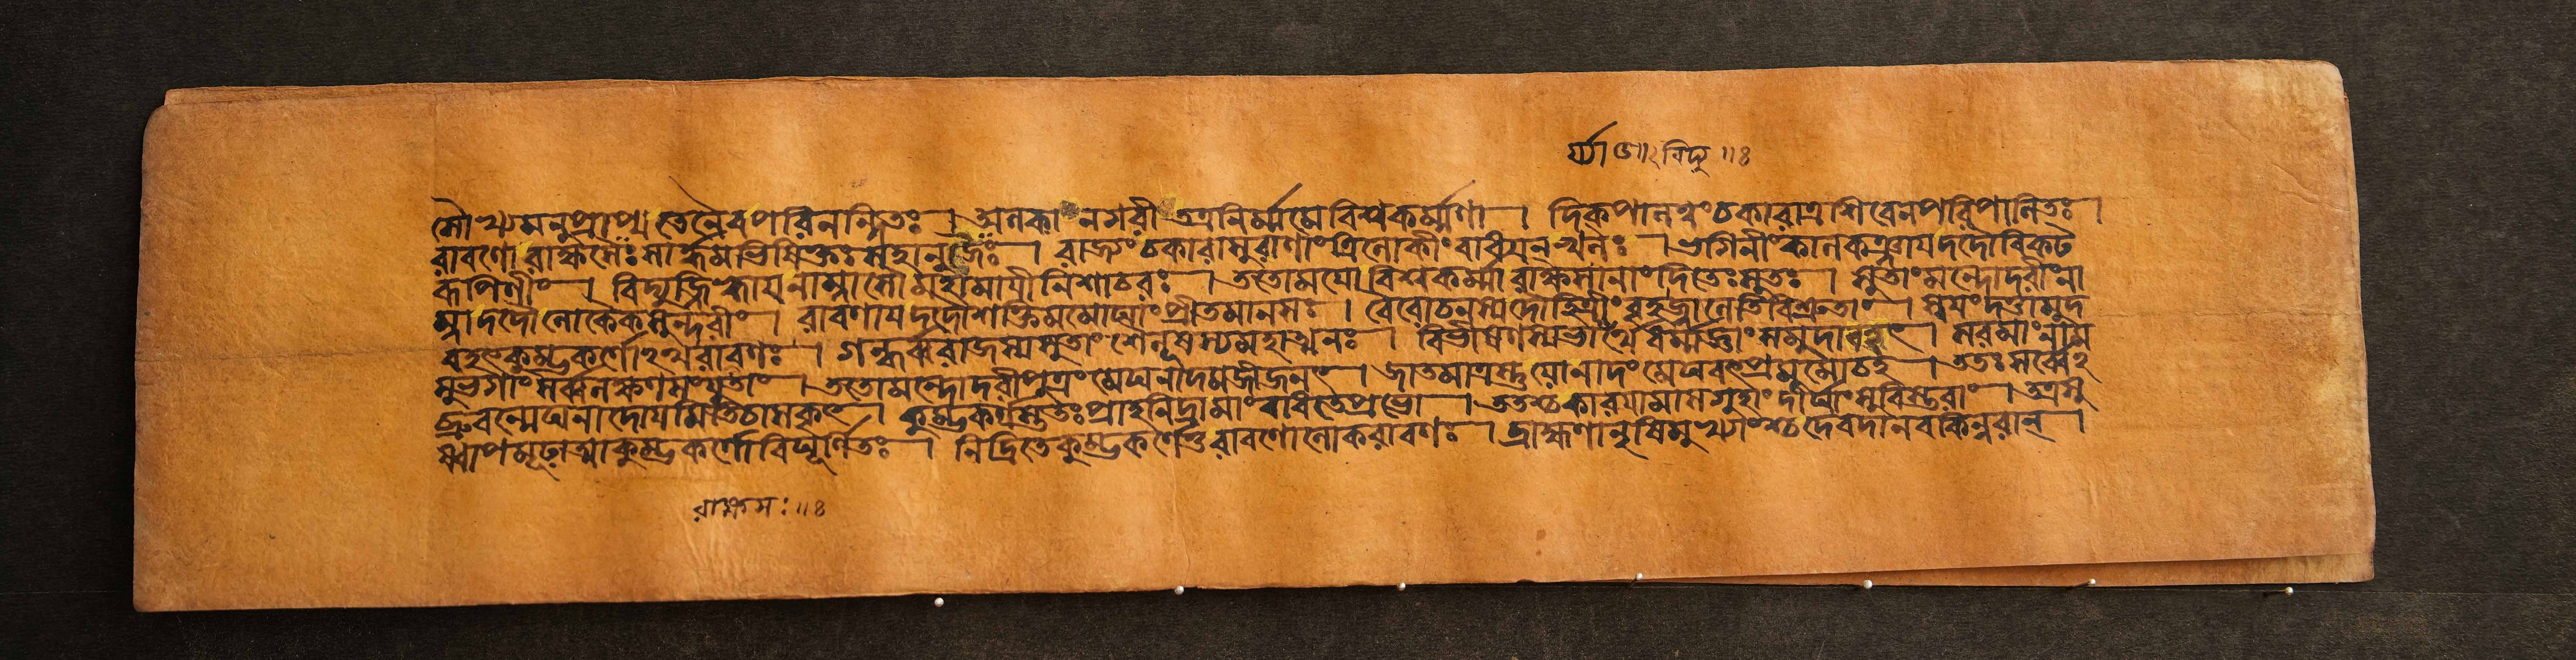 র্য্যা ৬॥ বিঘু ॥ঃ
সৌখ্যমনুপ্রাপ্য তেনৈব পরিনন্দিতঃ । অলকাং নগরীং তত্রনির্ম্মমে বিশ্বকর্ম্মণা । দিকপালত্বং চকারাত্র শিবেন পরিপালিতঃ ।
রাবণো রাক্ষসৈঃ সার্দ্ধমভিষিক্তঃ সহানুজৈঃ । রাজ্যং চকারাসুরাণাং ত্রিলোকীং বাধয়ন্খলঃ । ভগিনীং কালকঞ্জায দদৌ বিকট
রূপিণীং । বিদ্যুজ্জিহ্বায নাম্নাসৌ মহামাযী নিশাচরঃ । ততো মযো বিশ্বকর্ম্মা রাক্ষসানাং দিতেঃ সুতঃ । সুতাং মন্দোদরীং না
ম্না দদৌ লোকৈকসুন্দরীং । রাবণায দদৌ শক্তিমমোঘাং প্রীতমানসঃ । বৈরোচনস্য দৌহিত্রীং বৃত্রজ্বালেতি বিশ্রুতাং । স্বযং দত্তামুদ
বহৎকুম্ভকর্ণোঽথ রাবণঃ । গন্ধর্ব্বরাজস্য সুতাং শৈলূষস্য মহাত্মনঃ । বিভীষণস্য ভার্য্যার্থে ধর্ম্মজ্ঞাং সমুদাবহৎ । সরমাং নাম
সুভগাং সর্ব্বলক্ষণসংযুতাং । ততো মন্দোদরী পুত্রং মেঘনাদমজীজনৎ । জাতমাত্রস্তু যো নাদং মেঘবৎপ্রমুমোচ হ । ততঃ সর্ব্বেঽ
ব্রুবন্মেঘনাদোযমিতি চাসকৃৎ । কুম্ভকর্ণস্ততঃ প্রাহ নিদ্রা মাং বাধতে প্রভো । ততশ্চ কারযামাস গুহাং দীর্ঘাং সুবিস্তরাং । তত্র সু
ষ্বাপ মূঢাত্মা কুম্ভকর্ণো বিঘূর্ণিতঃ । নিদ্রিতে কুম্ভকর্ণে তু রাবণো লোকরাবণঃ । ব্রাহ্মণানৃষিমুখ্যাংশ্চ দেবদানবকিন্নরান্ ।
রাক্ষসঃ ॥ঃ